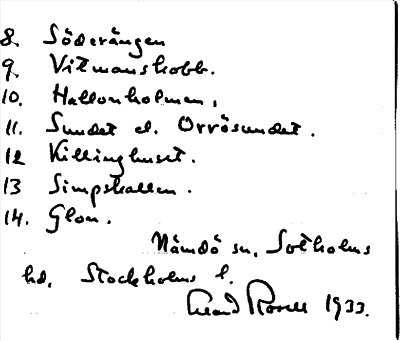 8. Söderängen
9. Vitmanskobb.
10. Hallonholmen.
11. Sundet el. Orrösundet.
12 Killinghuset.
13 Simpskallen.
14. Glon.
Nämdö sn, Sotholms
hd, Stockholms l.
1933.